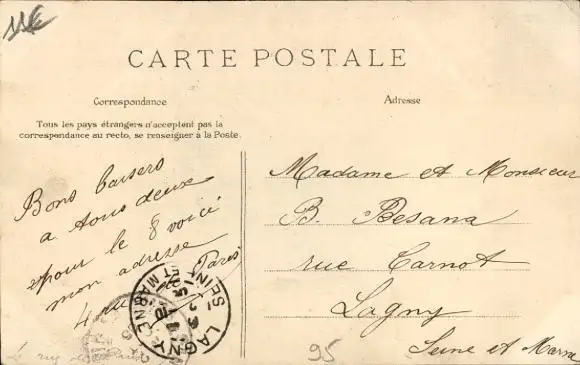 11€
CARTE POSTALE
Correspondance
Adresse
Tous les pays étrangers n'acceptent pas la
correspondance au recto, se renseigner à la Poste.
Bons baisers
a tous deux
pour le 8 voici
mon adresse
4 rue Paris
Madame et Monsieur
B. Besana
rue Carnot
Lagny
Seine et Marne
LAGNY
SEINE ET MARNE
95